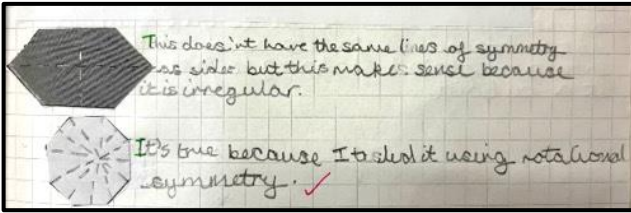 This does'nt have the same lines of symmetry
as sides but this makes sense because
it is irregular.
It's true because I tested it using rotational
symmetry.